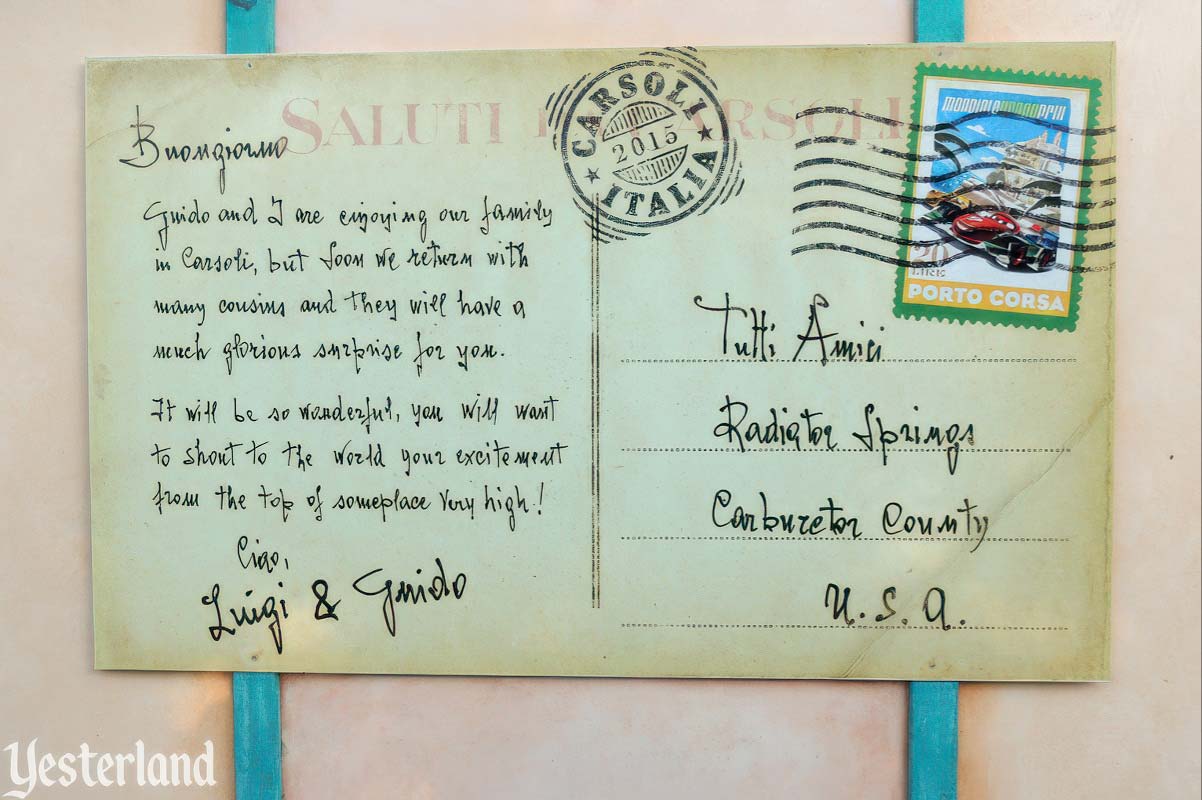 SALUTI DA CARSOLI
CARSOLI
2015
ITALIA
MONDIALE GRAND PRIX
20
LIRE
PORTO CORSA
Buongiorno
Guido and I are enjoying our family
in Carsoli, but soon we return with
many cousins and they will have a
much glorious surprise for you.
It will be so wonderful, you will want
to shout to the world your excitement
from the top of someplace very high!
Ciao,
Luigi & Guido
Tutti Amici
Radiator Springs
Carburetor County
U.S.A.
Yesterland